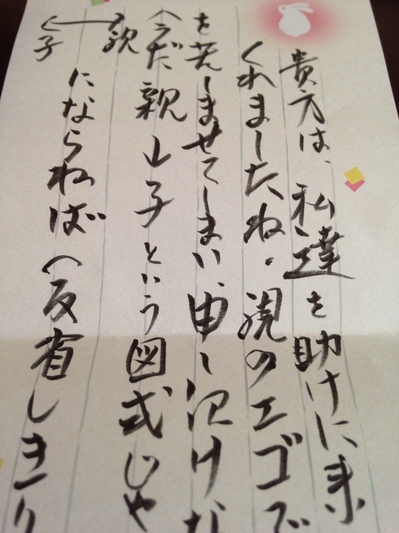 貴方は、私達を助けに来
くれましたね。親のエゴで
を苦しませてしまい、申し訳けな
(今だ親↓子という図式じゃ
親
子
にならねば(反省しきり